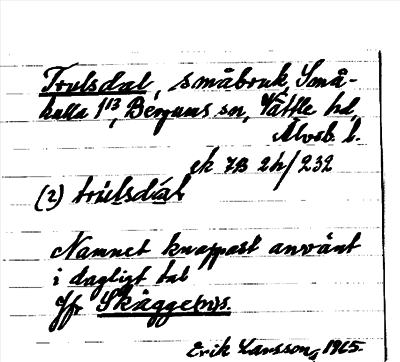 Trulsdal, småbruk, Små-
kulla 1¹³, Bergums sn, Vättle hd,
Älvsb. l.
ek 7B 2h/232
(2) trúlsdàl
Namnet knappast använt
i dagligt tal
Jfr Skågge(n)s.
Erik Larsson, 1965.